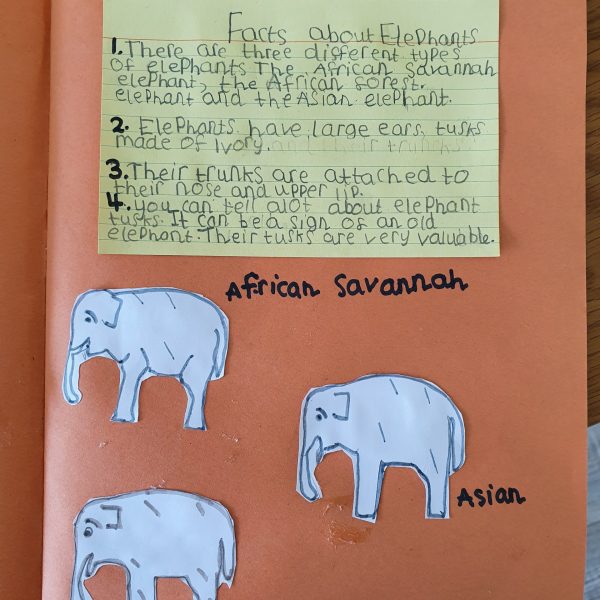 Facts about Elephants
1. There are three different types
of elephants The African Savannah
elephant, the African forest.
elephant and the Asian elephant.
2. Elephants have large ears, tusks
made of Ivory. and their trunks
3. Their trunks are attached to
their nose and upper lip.
4. you can tell alot about elephant
tusks. It can be a sign of an old
elephant. Their tusks are very valuable.
African Savannah
Asian